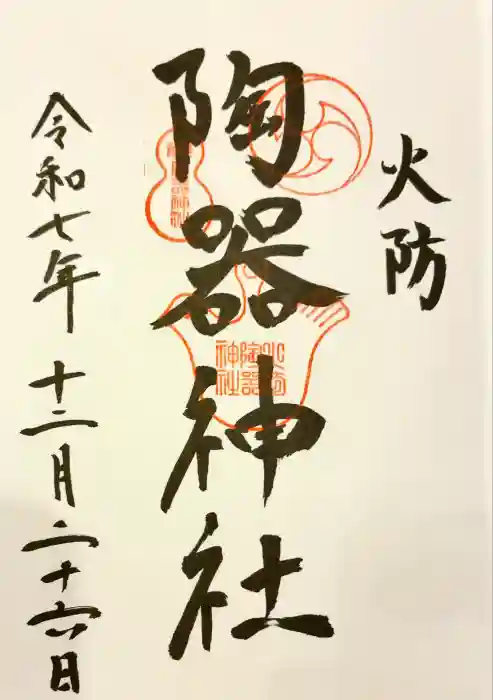 火防
陶器神社
令和七年 十二月二十六日
陶器
神社